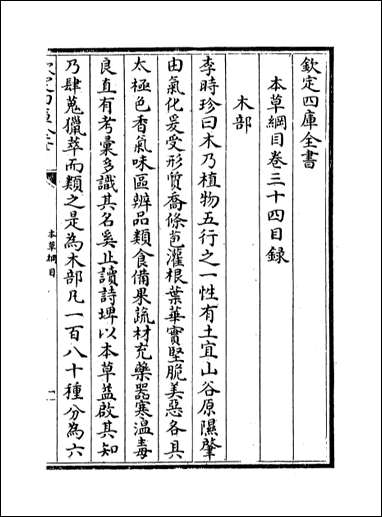 欽定四庫全書
本草綱目卷三十四目録
木部
李時珍曰木乃植物五行之一性有土宜山谷原隰肇
由氣化爰受形質喬條苞灌根葉華實堅脆美惡各具
太極色香氣味區辨品類食備果蔬材充藥器寒溫毒
良直有考彚多識其名奚止讀詩埤以本草益啟其知
乃肆蒐獵萃而類之是為木部凡一百八十種分為六
欽定四庫全書
本草綱目